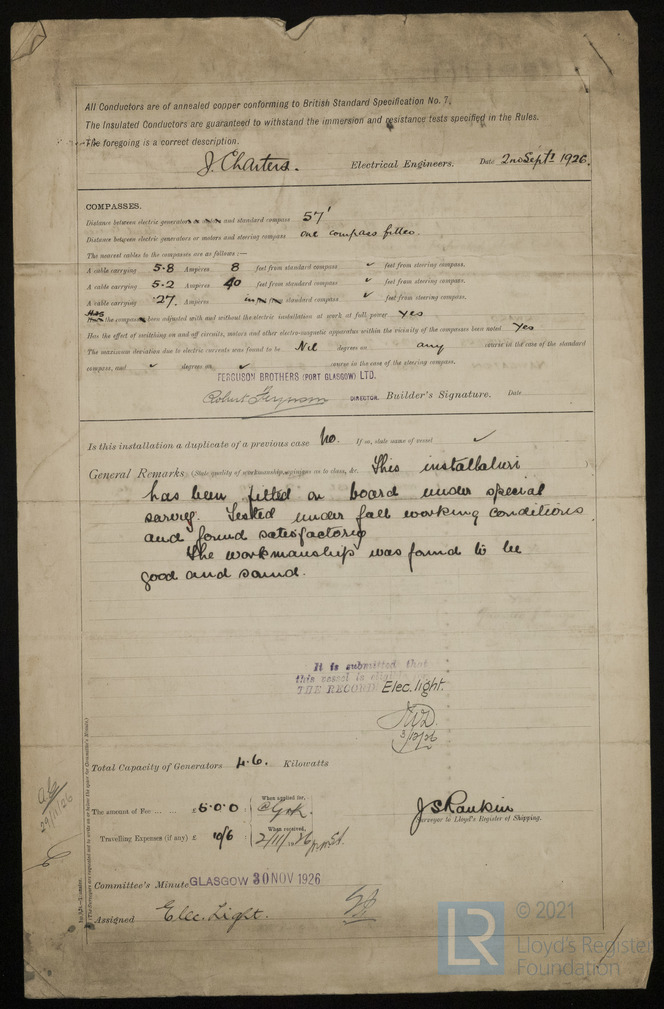 All Conductors are of annealed copper conforming to British Standard Specification No. 7.
The Insulated Conductors are guaranteed to withstand the immersion and resistance tests specified in the Rules.
The foregoing is a correct description.
J. Charters. Electrical Engineers. Date 2nd Septr 1926.
COMPASSES.
Distance between electric generators and standard compass 57'
Distance between electric generators or motors and steering compass one compass fitted.
The nearest cables to the compasses are as follows:—
A cable carrying 5.8 Ampères 8 feet from standard compass ✓ feet from steering compass.
A cable carrying 5.2 Ampères 40 feet from standard compass ✓ feet from steering compass.
A cable carrying .27 Ampères standard compass ✓ feet from steering compass.
Has the compass been adjusted with and without the electric installation at work at full power Yes
Has the effect of switching on and off circuits, motors and other electro-magnetic apparatus within the vicinity of the compasses been noted Yes
The maximum deviation due to electric currents was found to be Nil degrees on any course in the case of the standard
compass, and ✓ degrees on ✓ course in the case of the steering compass.
FERGUSON BROTHERS (PORT GLASGOW) LTD.
Robert Ferguson DIRECTOR. Builder's Signature. Date
Is this installation a duplicate of a previous case No. If so, state name of vessel ✓
General Remarks (State quality of workmanship, opinions as to class, &c. This installation
has been fitted on board under special
survey. Tested under full working conditions
and found satisfactory
The workmanship was found to be
good and sound.
It is submitted that
this vessel is eligible
THE RECORD Elec. light.
3/12/26
Total Capacity of Generators 4.6. Kilowatts
The amount of Fee ... ... £ 5.0.0 When applied for,
Travelling Expenses (if any) £ 10/6 When received,
2/11/1926
J S Rankin
Surveyor to Lloyd's Register of Shipping.
29/11/26
Committee's Minute GLASGOW 30 NOV 1926
Assigned Elec. Light.
LR
© 2021
Lloyd's Register
Foundation